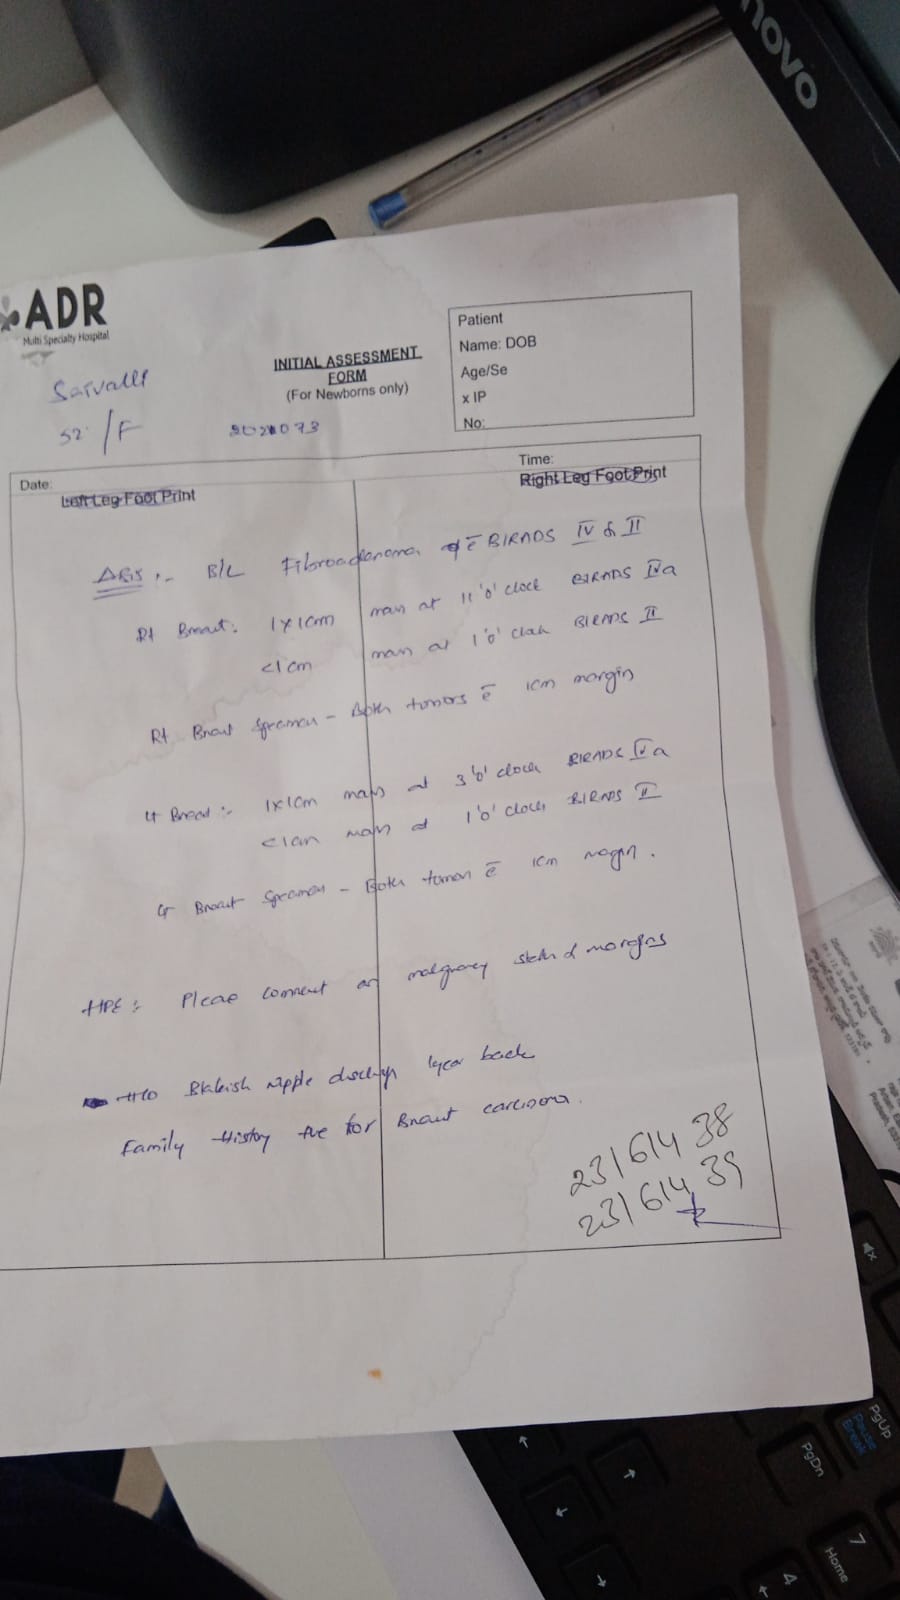 novo
ADR
Multi Specialty Hospital
52 /F
INITIAL ASSESSMENT
FORM
(For Newborns only)
Patient
Name: DOB
Age/Se
x IP
No:
Date:
Time:
Left Leg Foot Print
Right Leg Foot Print
B/L Fibroadenoma c̄ BIRADS IV & II
Rt Breast: 1x1cm mass at 11 'o' clock BIRADS IVa
<1cm mass at 1 'o' clock BIRADS II
Rt Breast specimen - Both tumors c̄ 1cm margin
Lt Breast :- 1x1cm mass at 3 'o' clock BIRADS IVa
<1cm mass at 1 'o' clock BIRADS II
Lt Breast specimen - Both tumors c̄ 1cm margin.
HPE: Please comment on malignancy status of margins
H/O Blakish nipple discharge 1 year back
Family History +ve for Breast carcinoma.
231614 38
231614 39
PgUp
Pause
Break
PgDn
7
Home
4